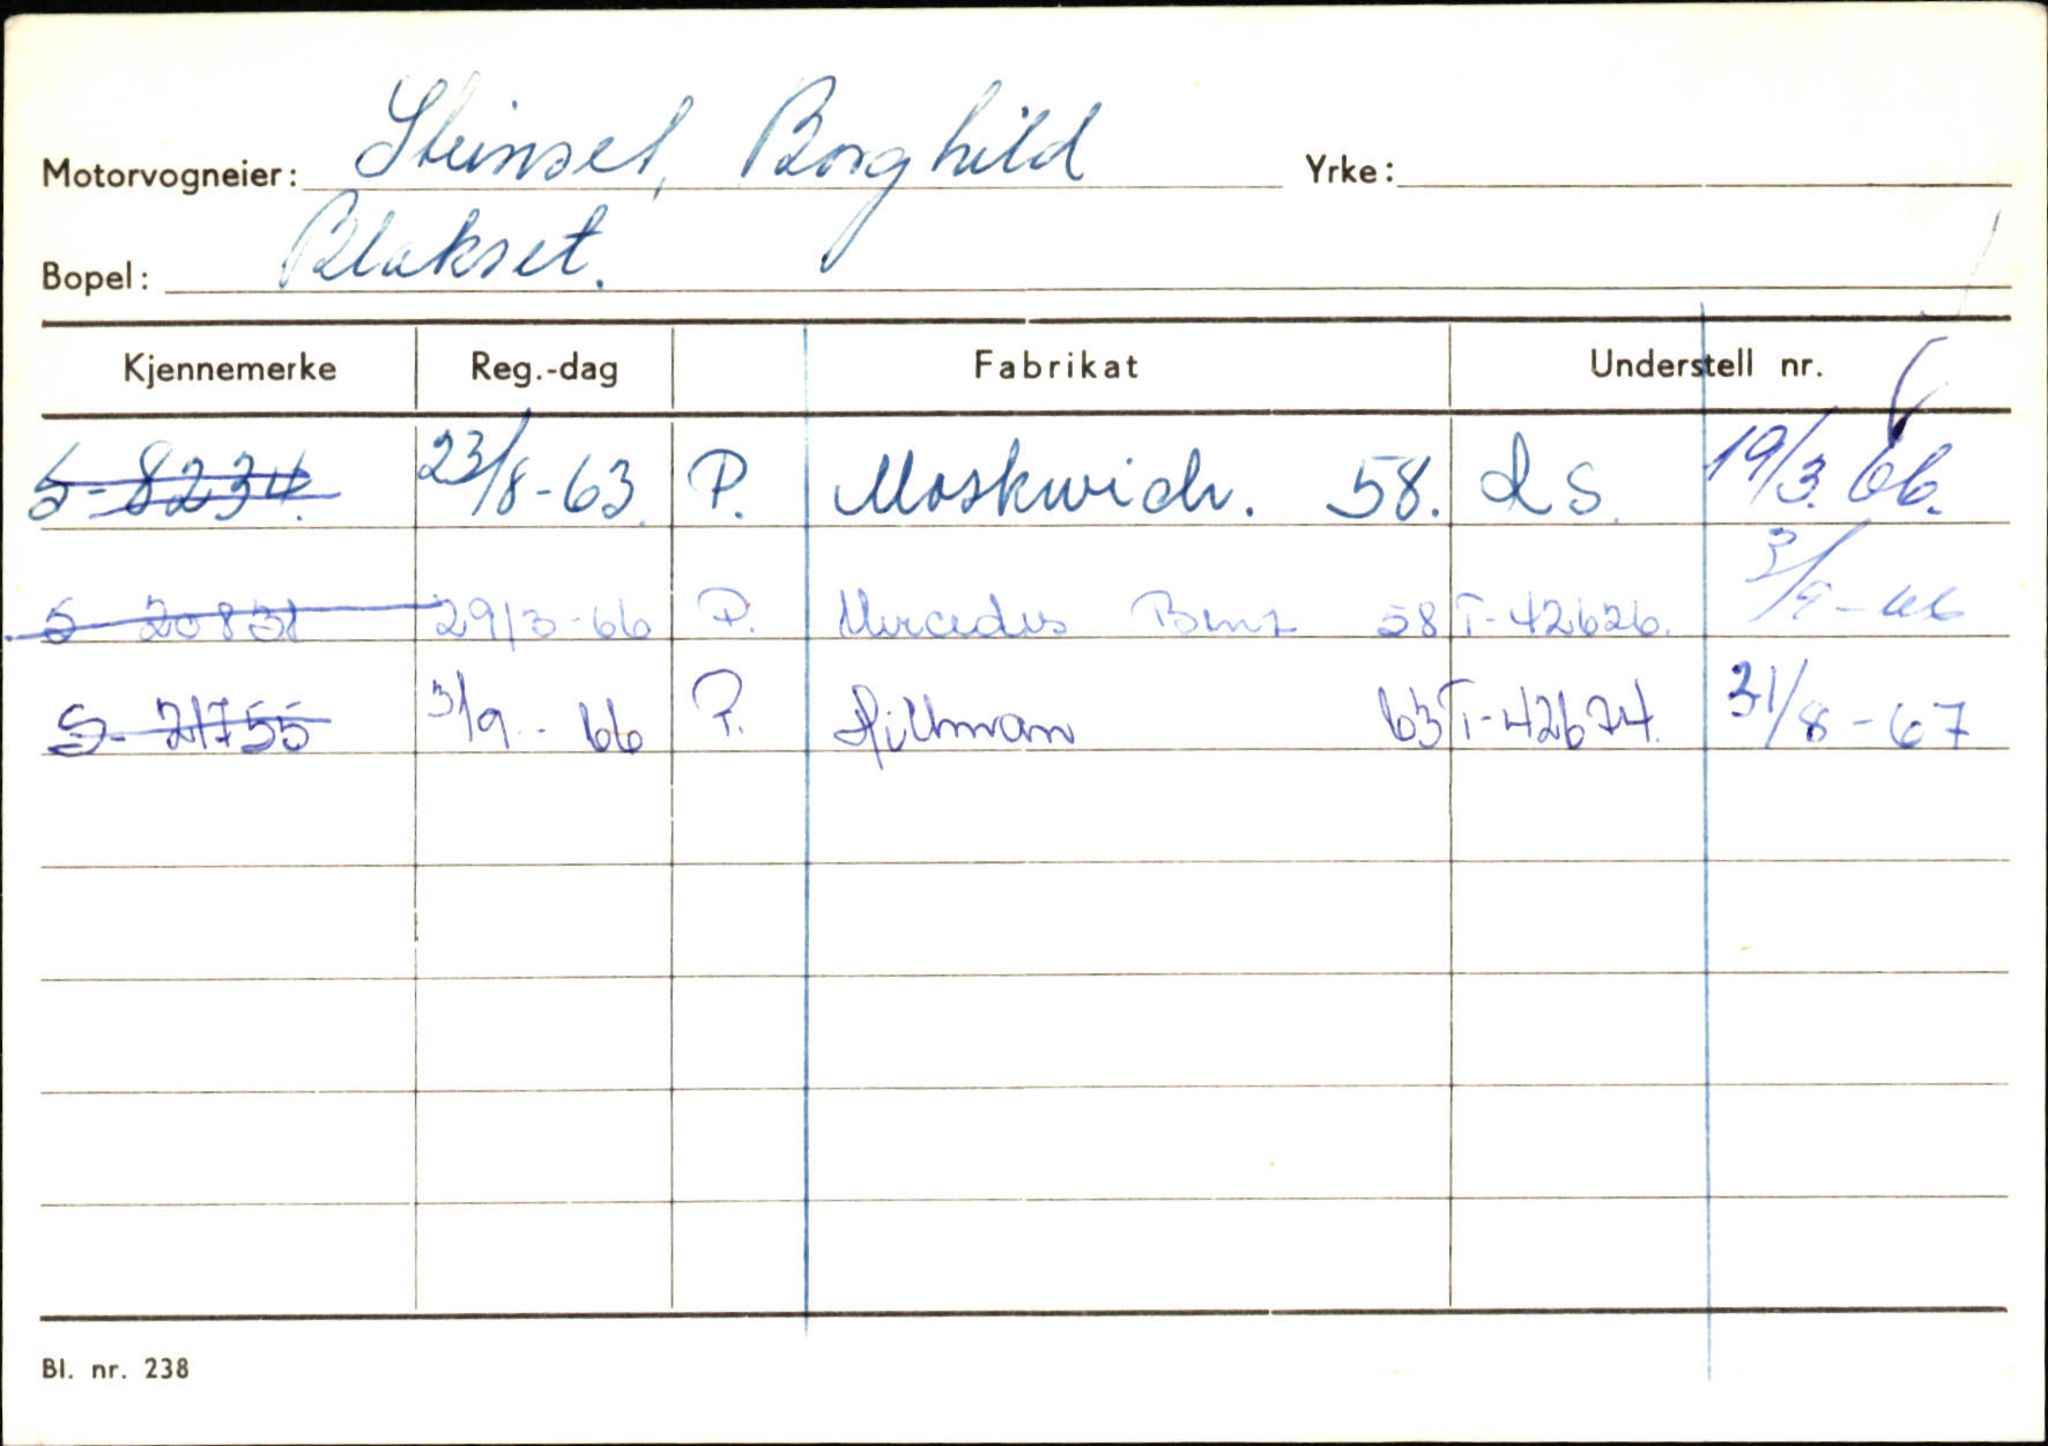 Motorvogneier: Steinset, Borghild Yrke:
Bopel: Blakset.
Kjennemerke Reg.-dag Fabrikat Understell nr.
S-8234. 23/8-63. P. Moskwich. 58. R S. 19/3.66.
S 20831 29/3-66 P. Mercedes Benz 58 T-42626. 3/9-66
S-21755 3/9-66 P. Hillman 63 T-42674. 31/8-67
Bl. nr. 238